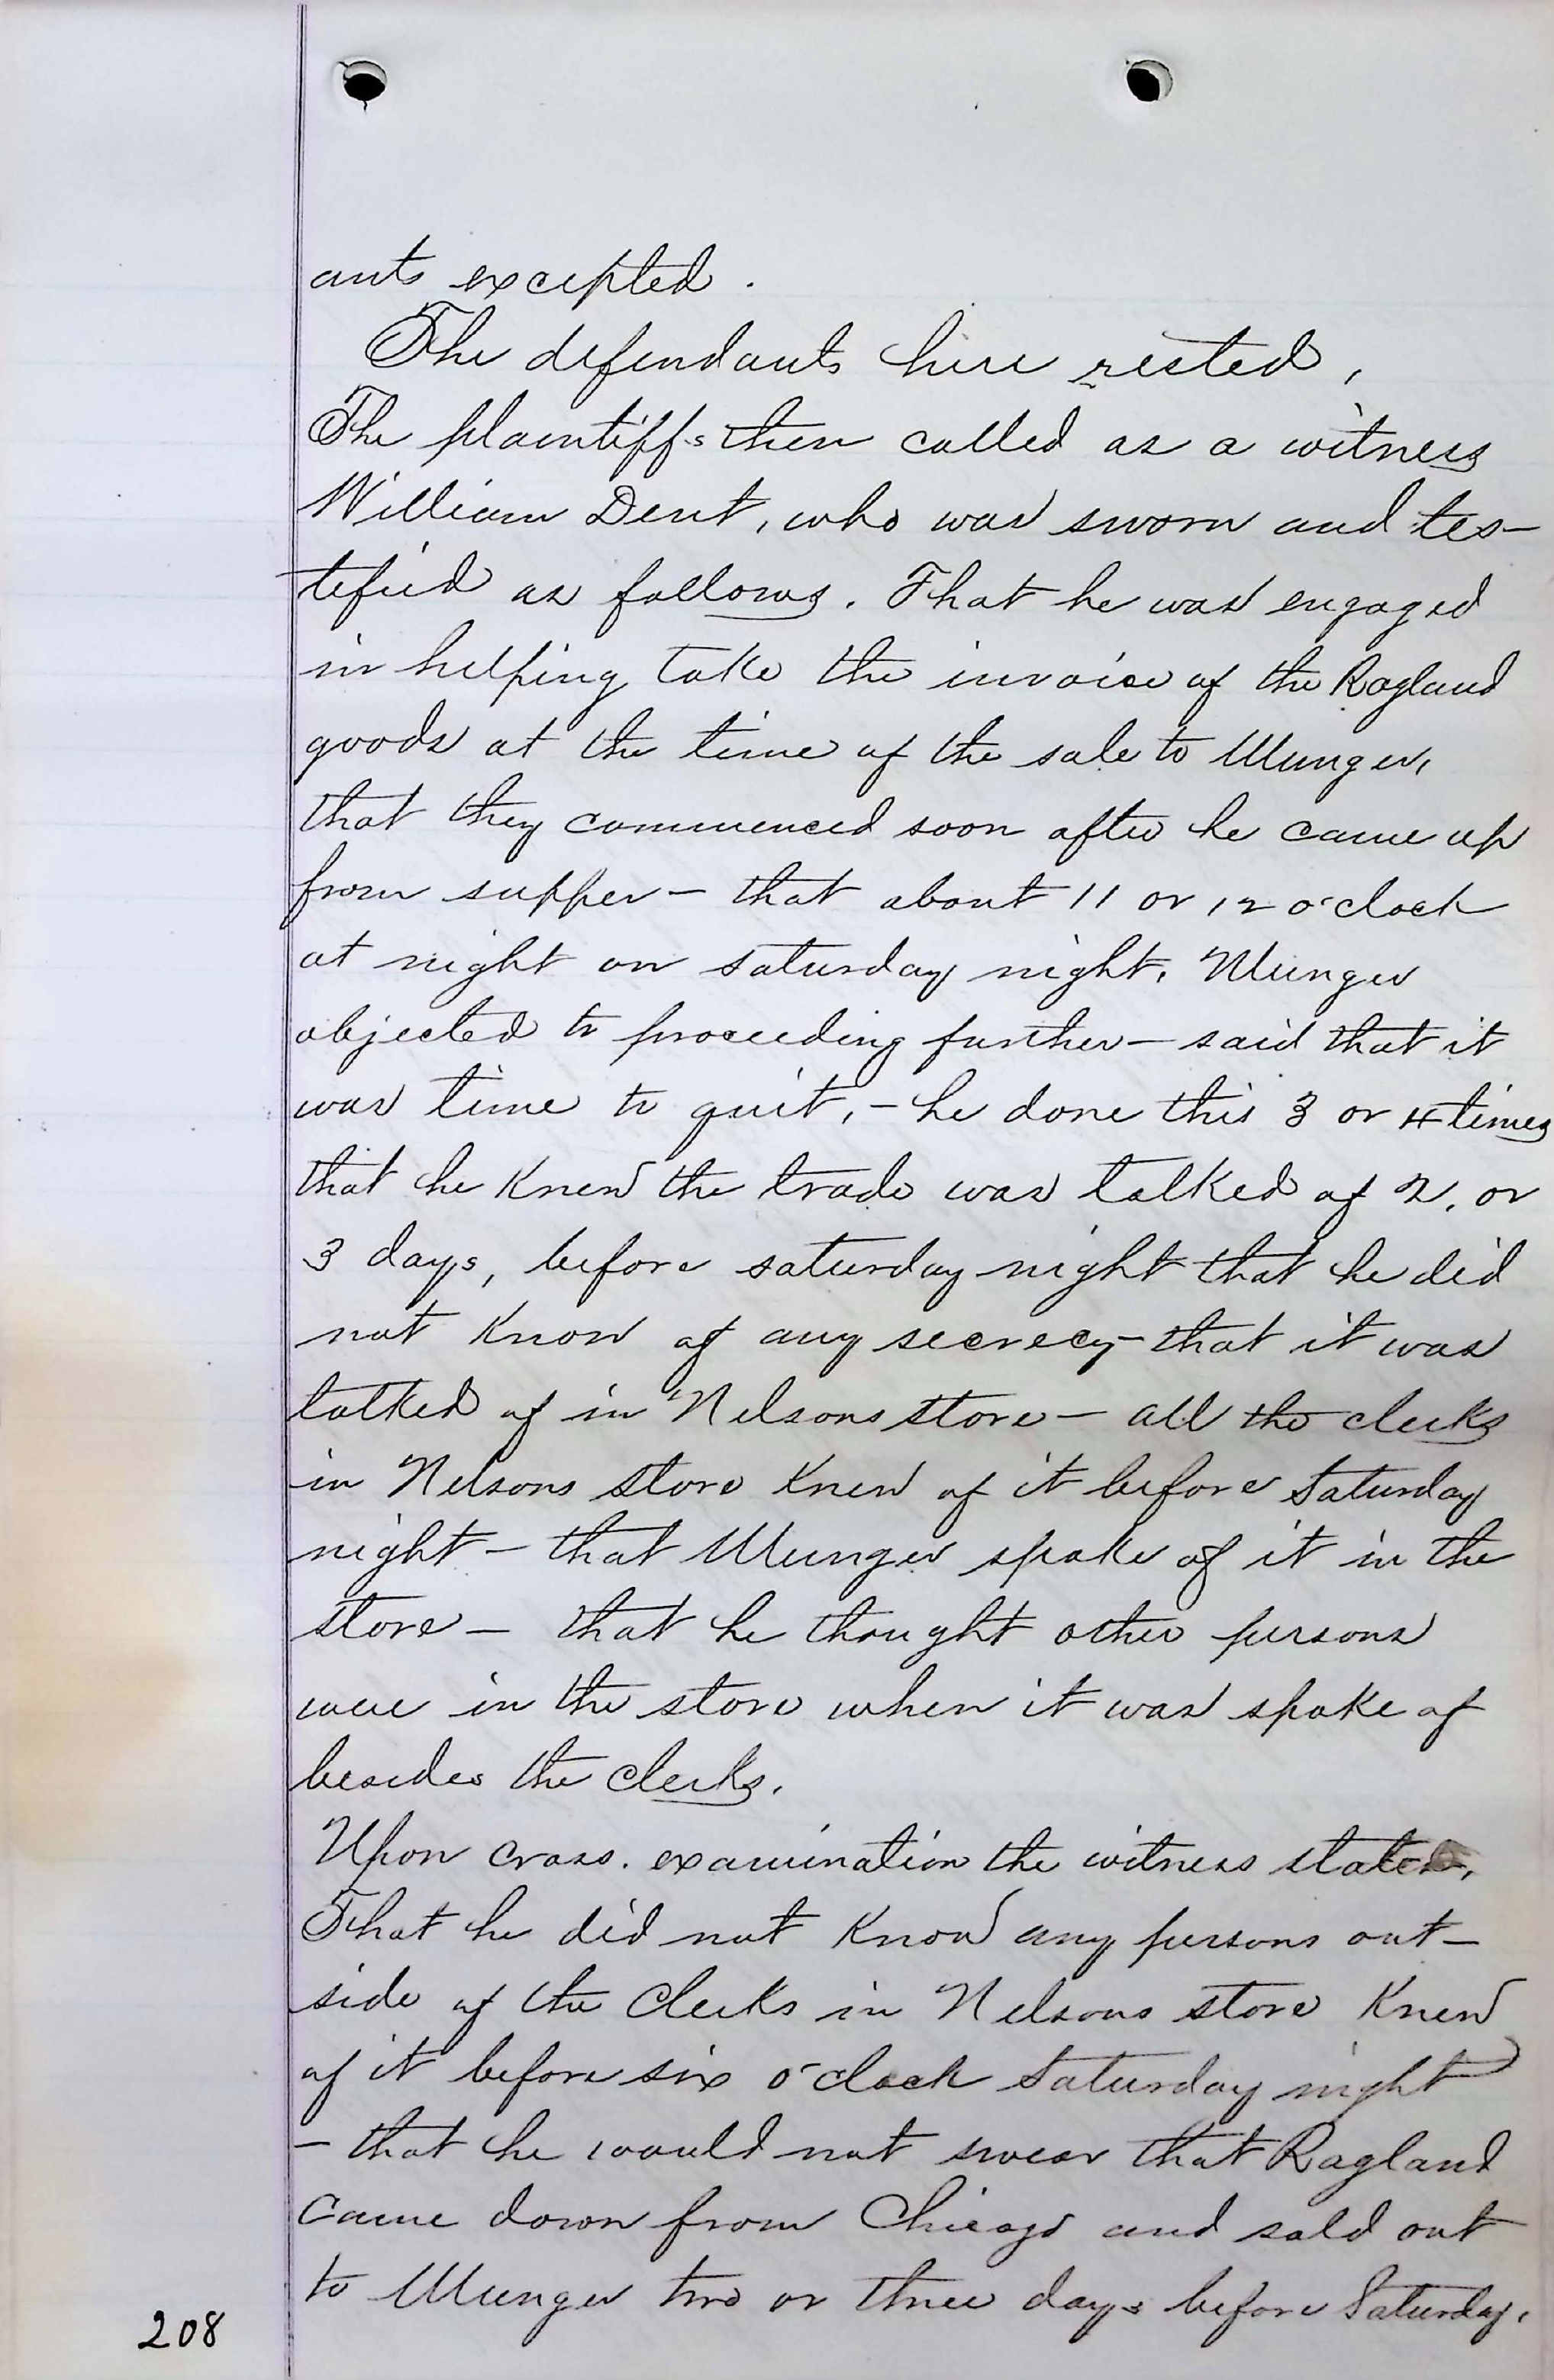 ants excepted.
The defendants here rested,
The plaintiffs then called as a witness
William Dent, who was sworn and tes-
tified as follows. That he was engaged
in helping take the invoice of the Ragland
goods at the time of the sale to Munger,
that they commenced soon after he came up
from supper - that about 11 or 12 o'clock
at night on saturday night, Munger
objected to proceeding further - said that it
was time to quit, - he done this 3 or 4 times
that he knew the trade was talked of 2, or
3 days, before saturday night that he did
not know of any secrecy - that it was
talked of in Nelsons store - all the clerks
in Nelsons store knew of it before Saturday
night - that Munger spoke of it in the
store - that he thought other persons
were in the store when it was spoke of
besides the clerks.
Upon cross. examination the witness stated,
That he did not know any persons out-
side of the clerks in Nelsons store knew
of it before six o'clock Saturday night
- that he would not swear that Ragland
came down from Chicago and sold out
to Munger two or three days before Saturday.
208